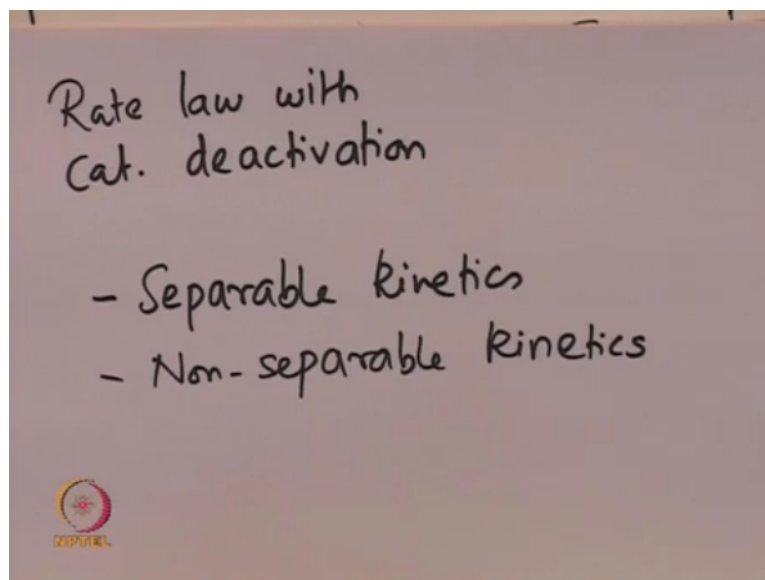 Rate law with
Cat. deactivation
- Separable kinetics
- Non-separable kinetics
NPTEL